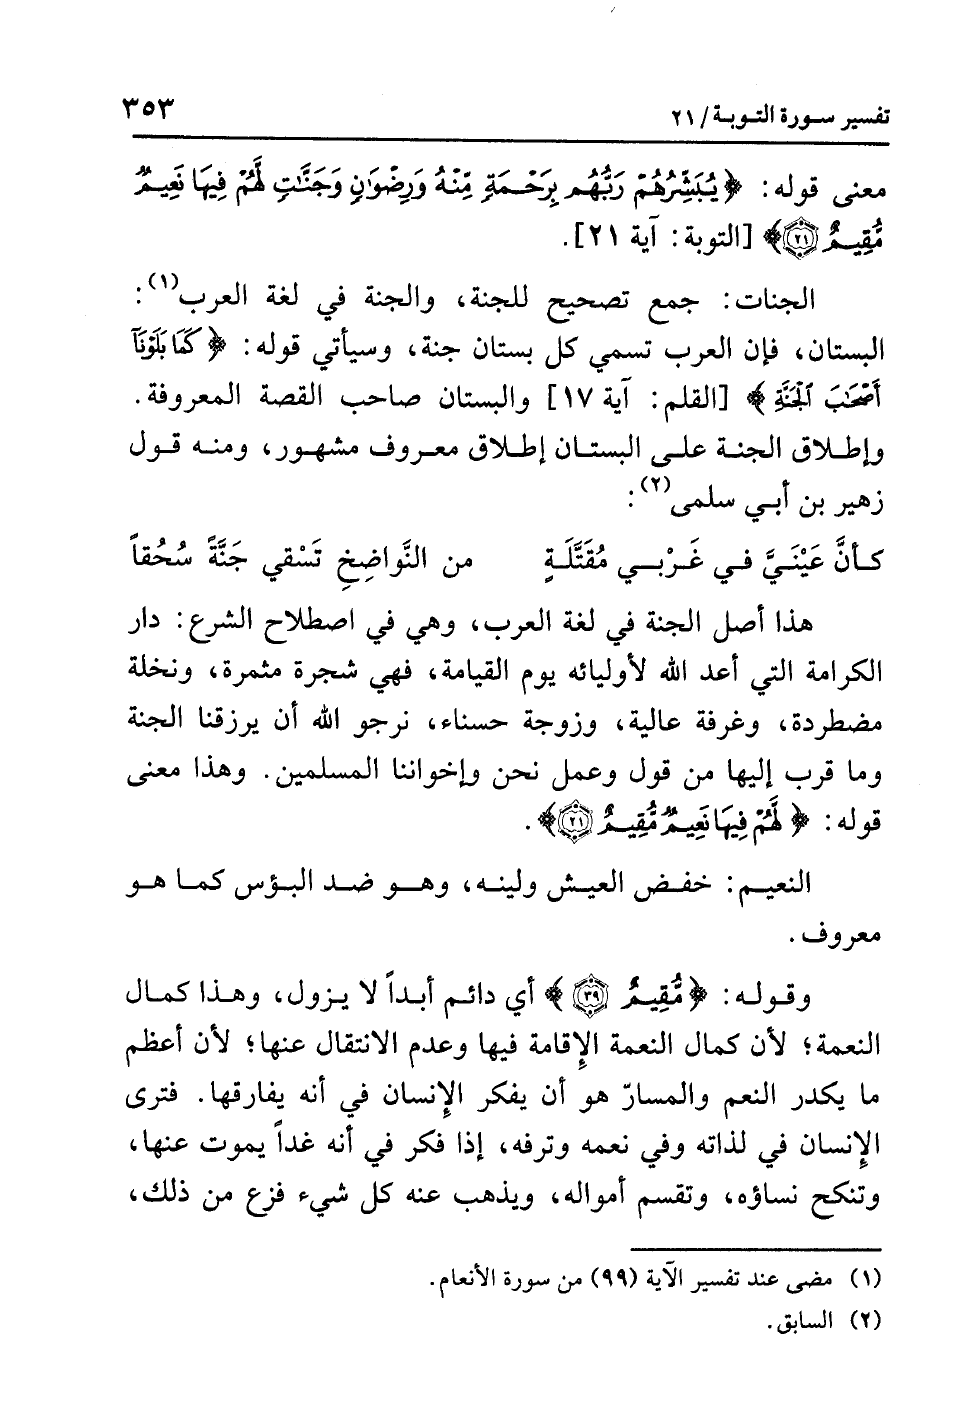 تفسير سورة التوبة/ ٢١ ٣٥٣
معنى قوله: ﴿يُبَشِّرُهُمْ رَبُّهُم بِرَحْمَةٍ مِّنْهُ وَرِضْوَانٍ وَجَنَّاتٍ لَّهُمْ فِيهَا نَعِيمٌ
مُّقِيمٌ ٢١﴾ [التوبة: آية ٢١].
الجنات: جمع تصحيح للجنة، والجنة في لغة العرب(١):
البستان، فإن العرب تسمي كل بستان جنة، وسيأتي قوله: ﴿كَمَا بَلَوْنَآ
أَصْحَابَ ٱلْجَنَّةِ﴾ [القلم: آية ١٧] والبستان صاحب القصة المعروفة.
وإطلاق الجنة على البستان إطلاق معروف مشهور، ومنه قول
زهير بن أبي سلمى(٢):
كأنَّ عَيْنَيَّ في غَرْبي مُقَتَّلَةٍ من النَّواضِخِ تَسْقي جَنَّةً سُحُقاً
هذا أصل الجنة في لغة العرب، وهي في اصطلاح الشرع: دار
الكرامة التي أعد الله لأوليائه يوم القيامة، فهي شجرة مثمرة، ونخلة
مضطردة، وغرفة عالية، وزوجة حسناء، نرجو الله أن يرزقنا الجنة
وما قرب إليها من قول وعمل نحن وإخواننا المسلمين. وهذا معنى
قوله: ﴿لَّهُمْ فِيهَا نَعِيمٌ مُّقِيمٌ ٢١﴾.
النعيم: خفض العيش ولينه، وهو ضد البؤس كما هو
معروف.
وقوله: ﴿مُّقِيمٌ ٣٩﴾ أي دائم أبداً لا يزول، وهذا كمال
النعمة؛ لأن كمال النعمة الإقامة فيها وعدم الانتقال عنها؛ لأن أعظم
ما يكدر النعم والمسارّ هو أن يفكر الإنسان في أنه يفارقها. فترى
الإنسان في لذاته وفي نعمه وترفه، إذا فكر في أنه غداً يموت عنها،
وتنكح نساؤه، وتقسم أمواله، ويذهب عنه كل شيء فزع من ذلك،
(١) مضى عند تفسير الآية (٩٩) من سورة الأنعام.
(٢) السابق.